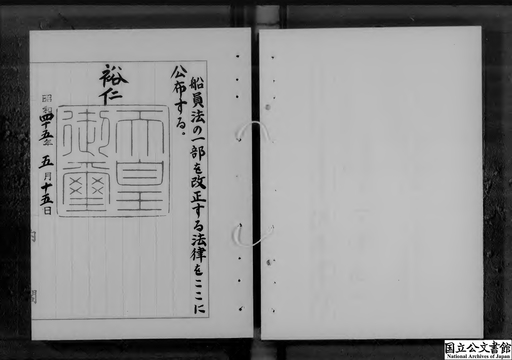 船員法の一部を改正する法律をここに
公布する。
裕仁
天皇御璽
昭和四十五年五月十五日
内閣
国立公文書館
National Archives of Japan